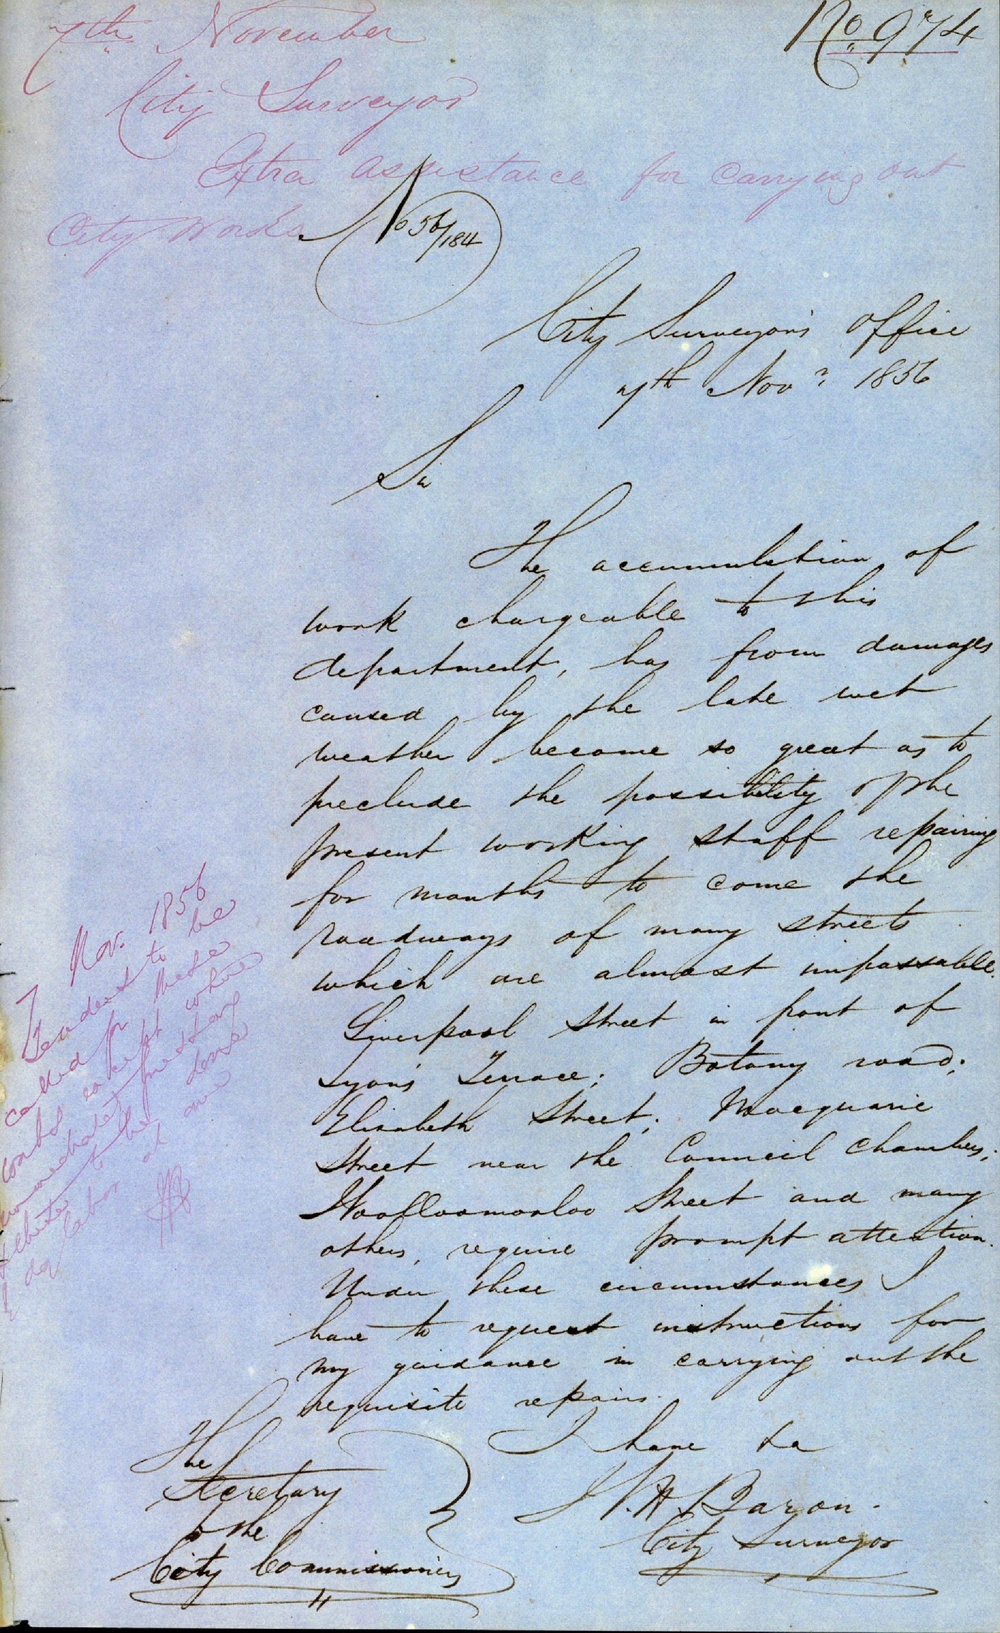 No. 974
7th November
City Surveyor
Extra assistance for carrying out
City Works
No 56/184
City Surveyor's Office
7th Novr 1856
Sir
The accumulation of
work chargeable to this
department, has from damages
caused by the late wet
weather become so great as to
preclude the possibility of the
present working staff repairing
for months to come the
roadways of many streets
which are almost impassable.
Liverpool Street in front of
Lyons Terrace; Botany road;
Elizabeth Street; Macquarie
Street near the Council Chambers;
Woolloomooloo Street and many
others, require prompt attention.
Under these circumstances I
have to request instructions for
my guidance in carrying out the
requisite repairs.
I have &a
City Surveyor
The
Secretary
to the
City Commissioners
7 Nov. 1856
Tenders to be
called for these
works except where
immediate
to be done
labor